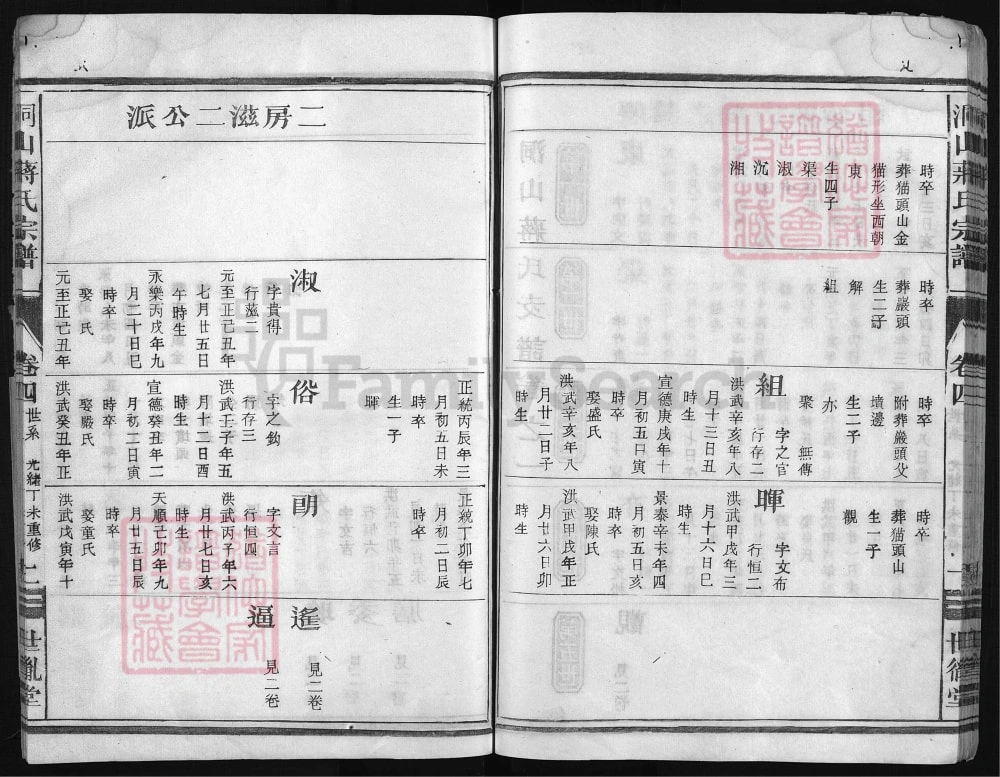 洞山蔣氏宗譜
卷四
世𦙍堂
時卒
葬貓頭山金
貓形坐西朝
東
生四子
渠
淑
沅
湘
時卒
葬巖頭
生二子
解
組
時卒
附葬嚴頭父
墳邊
生二子
亦
聚 無傳
組
字之官
行存二
洪武辛亥年八
月十三日丑
時生
宣德庚戌年十
月初五日寅
時卒
娶盛氏
洪武辛亥年八
月廿二日子
時生
時卒
葬貓頭山
生一子
觀
暉
字文布
行恒二
洪武甲戌年三
月十六日巳
時生
景泰辛未年四
月初五日亥
時卒
娶陳氏
洪武甲戌年正
月廿六日卯
時生
二房滋二公派
淑
字貴得
行滋二
元至正己丑年
七月廿五日
午時生
永樂丙戌年九
月二十日巳
時卒
娶 氏
元至正己丑年
正統丙辰年三
月初五日未
時卒
生一子
暉
俗
字之鈞
行存三
洪武壬子年五
月十二日酉
時生
宣德癸丑年二
月初二日寅
時卒
娶嚴氏
洪武癸丑年正
正統丁卯年七
月初二日辰
時卒
明
字文言
行恒四
洪武丙子年六
月廿七日亥
時生
天順己卯年九
月廿五日辰
時卒
娶童氏
洪武戊寅年十
遙
見二卷
逼
見二卷
洞山蔣氏宗譜
卷四
世系
光緒丁未重修
十二
世胤堂
FamilySearch